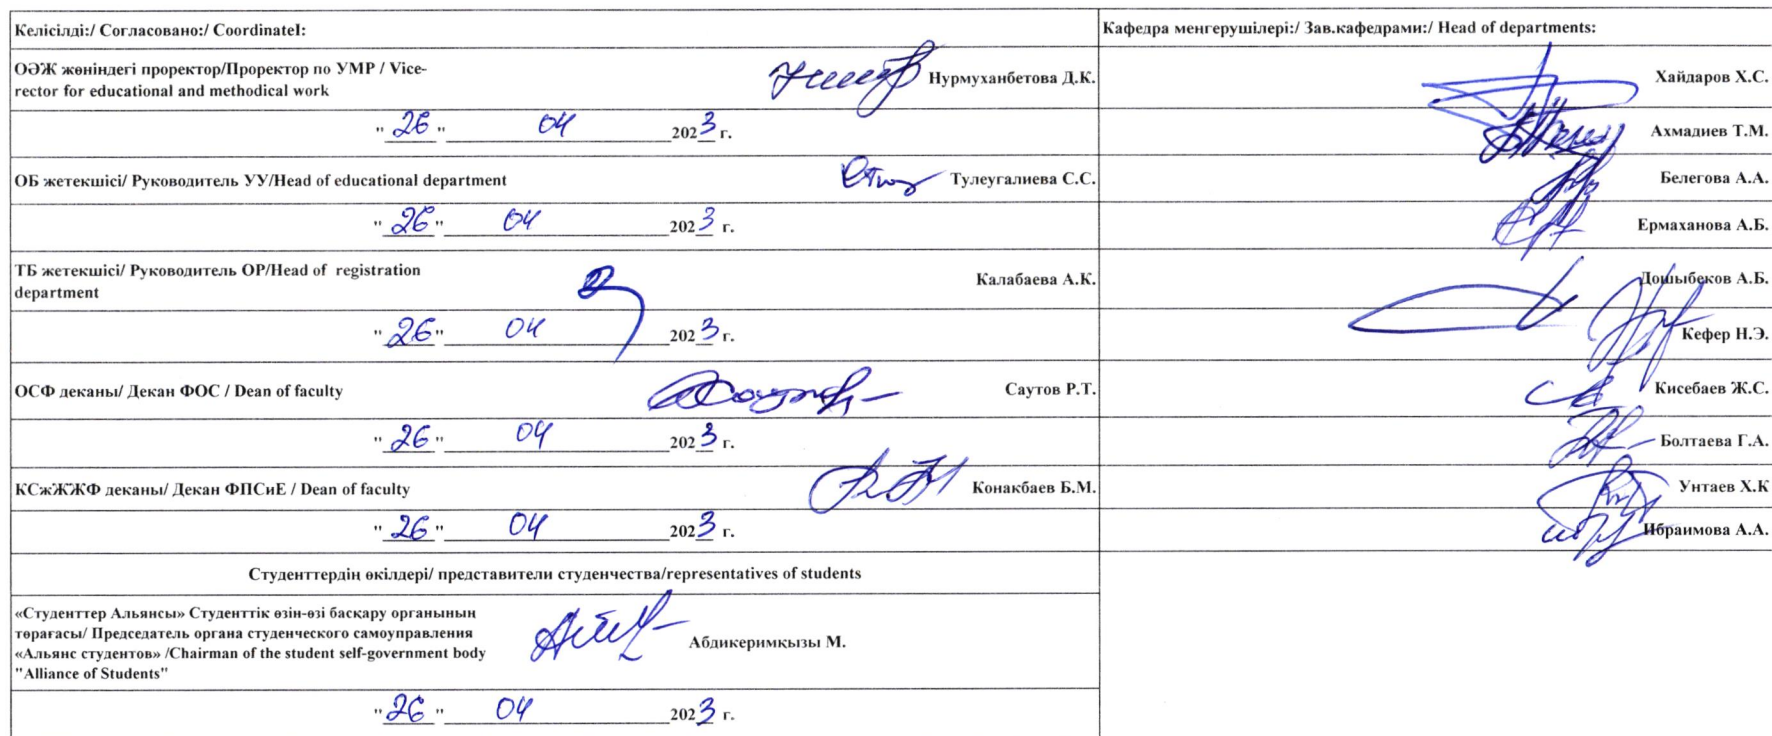 Келісілді:/ Согласовано:/ Coordinatel:
ОӘЖ жөніндегі проректор/Проректор по УМР / Vice-
rector for educational and methodical work
Нурмуханбетова Д.К.
" 26 " 04 2023 г.
ОБ жетекшісі/ Руководитель УУ/Head of educational department
Тулеугалиева С.С.
" 26 " 04 2023 г.
ТБ жетекшісі/ Руководитель ОР/Head of registration
department
Калабаева А.К.
" 26 " 04 2023 г.
ОСФ деканы/ Декан ФОС / Dean of faculty
Саутов Р.Т.
" 26 " 04 2023 г.
КСжЖЖФ деканы/ Декан ФПСиЕ / Dean of faculty
Конакбаев Б.М.
" 26 " 04 2023 г.
Студенттердің өкілдері/ представители студенчества/representatives of students
«Студенттер Альянсы» Студенттік өзін-өзі басқару органының
төрағасы/ Председатель органа студенческого самоуправления
«Альянс студентов» /Chairman of the student self-government body
"Alliance of Students"
Абдикеримқызы М.
" 26 " 04 2023 г.
Кафедра меңгерушілері:/ Зав.кафедрами:/ Head of departments:
Хайдаров Х.С.
Ахмадиев Т.М.
Белегова А.А.
Ермаханова А.Б.
Дошыбеков А.Б.
Кефер Н.Э.
Кисебаев Ж.С.
Болтаева Г.А.
Унтаев Х.К
Ибраимова А.А.